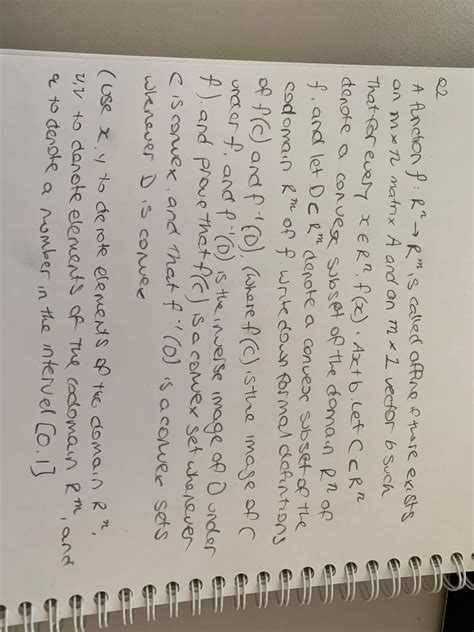 Q2
A function f: Rⁿ → Rᵐ is called affine if there exists
an m×n matrix A and an m×1 vector b such
that for every x ∈ Rⁿ, f(x) = Ax+b. Let C ⊂ Rⁿ
denote a convex subset of the domain Rⁿ of
f, and let D ⊂ Rᵐ denote a convex subset of the
codomain Rᵐ of f write down formal definitions
of f(C) and f⁻¹(D), (where f(C) is the image of C
under f, and f⁻¹(D) is the inverse image of D under
f), and prove that f(C) is a convex set whenever
C is convex, and that f⁻¹(D) is a convex sets
whenever D is convex
(use x, y to denote elements of the domain Rⁿ,
u, v to denote elements of the codomain Rᵐ, and
to denote a number in the interval [0,1]